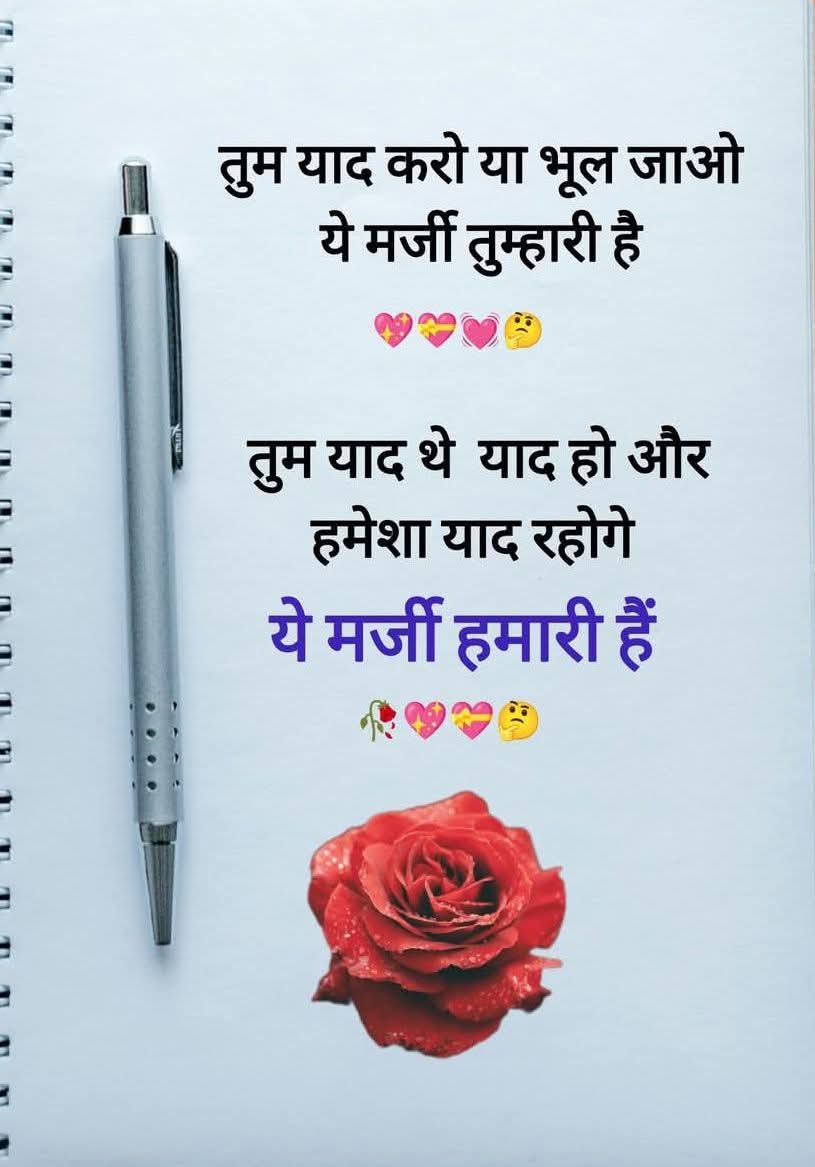 तुम याद करो या भूल जाओ
ये मर्जी तुम्हारी है
💖💝💓🤔
तुम याद थे याद हो और
हमेशा याद रहोगे
ये मर्जी हमारी हैं
🥀💖💝🤔